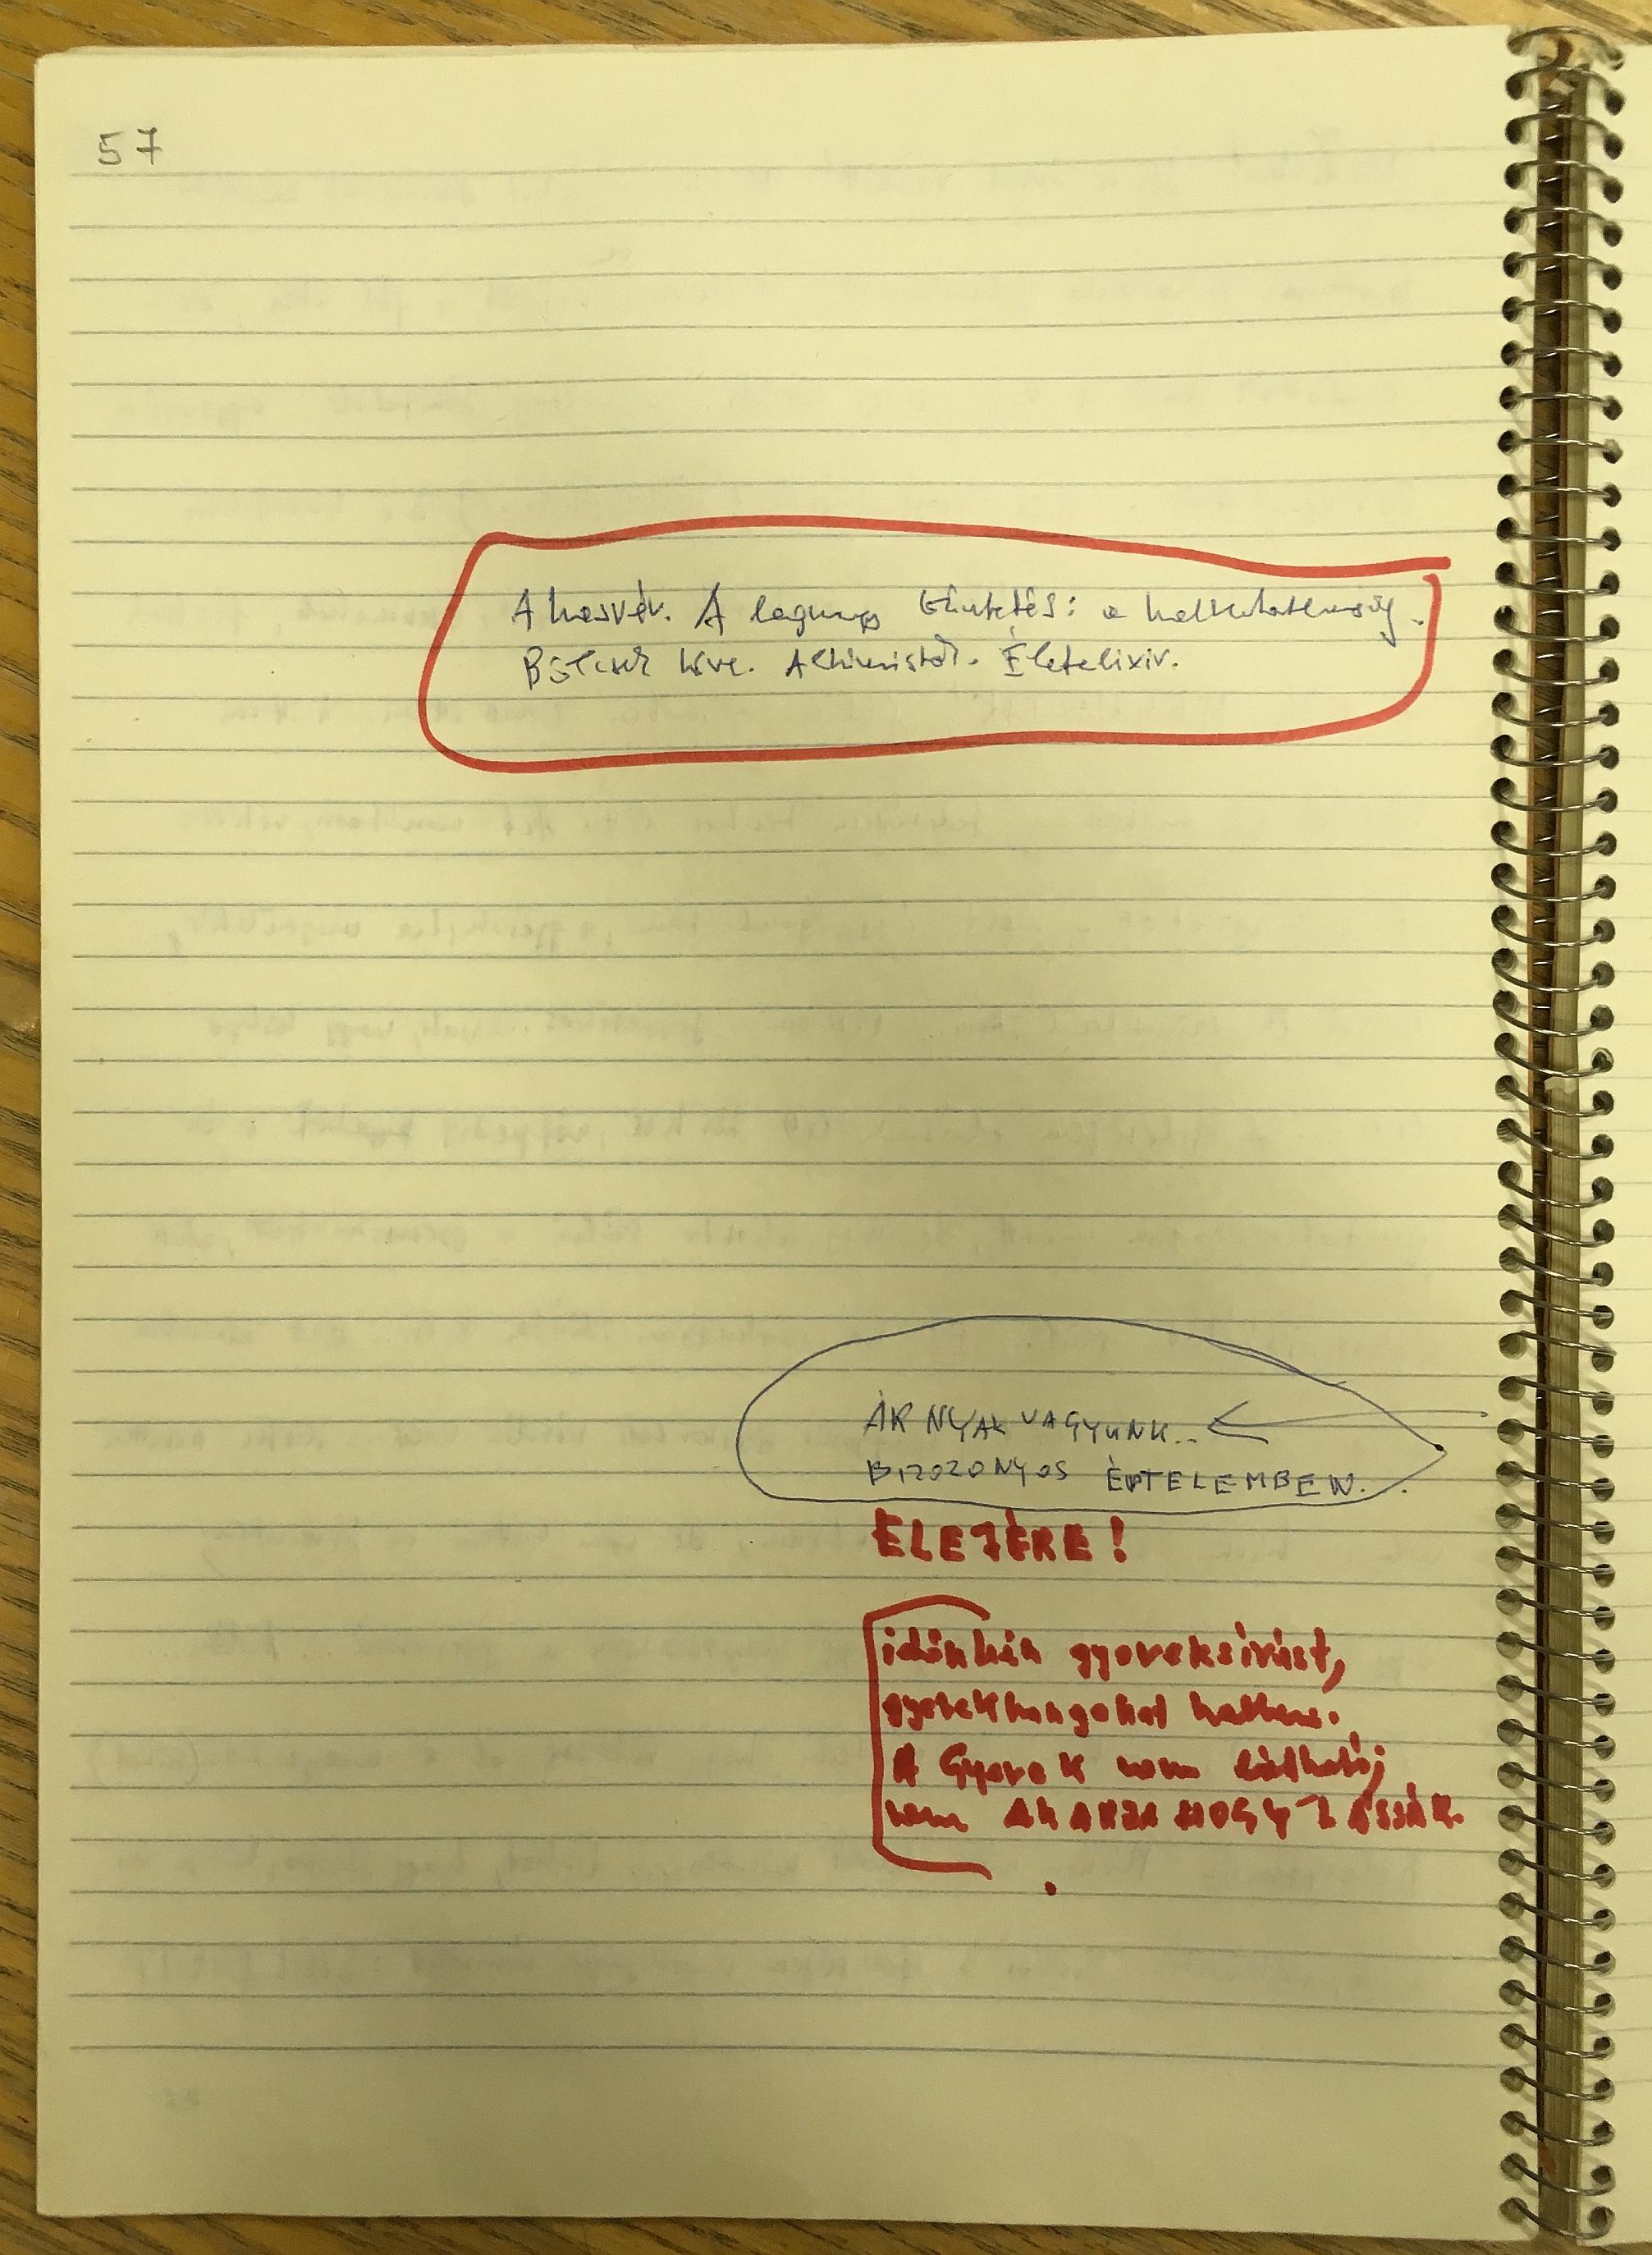 57
Ahasvér. A legnagyobb büntetés: a halhatatlanság.
Bölcsek köve. Alkimisták. Életelixir.
ÁRNYAK VAGYUNK..
BIZOZONYOS ÉRTELEMBEN.
ELEJÉRE!
időnkén gyereksírást,
gyerekhangokat hallani.
A Gyerek nem látható;
nem AKARJA HOGY LÁSSÁK.